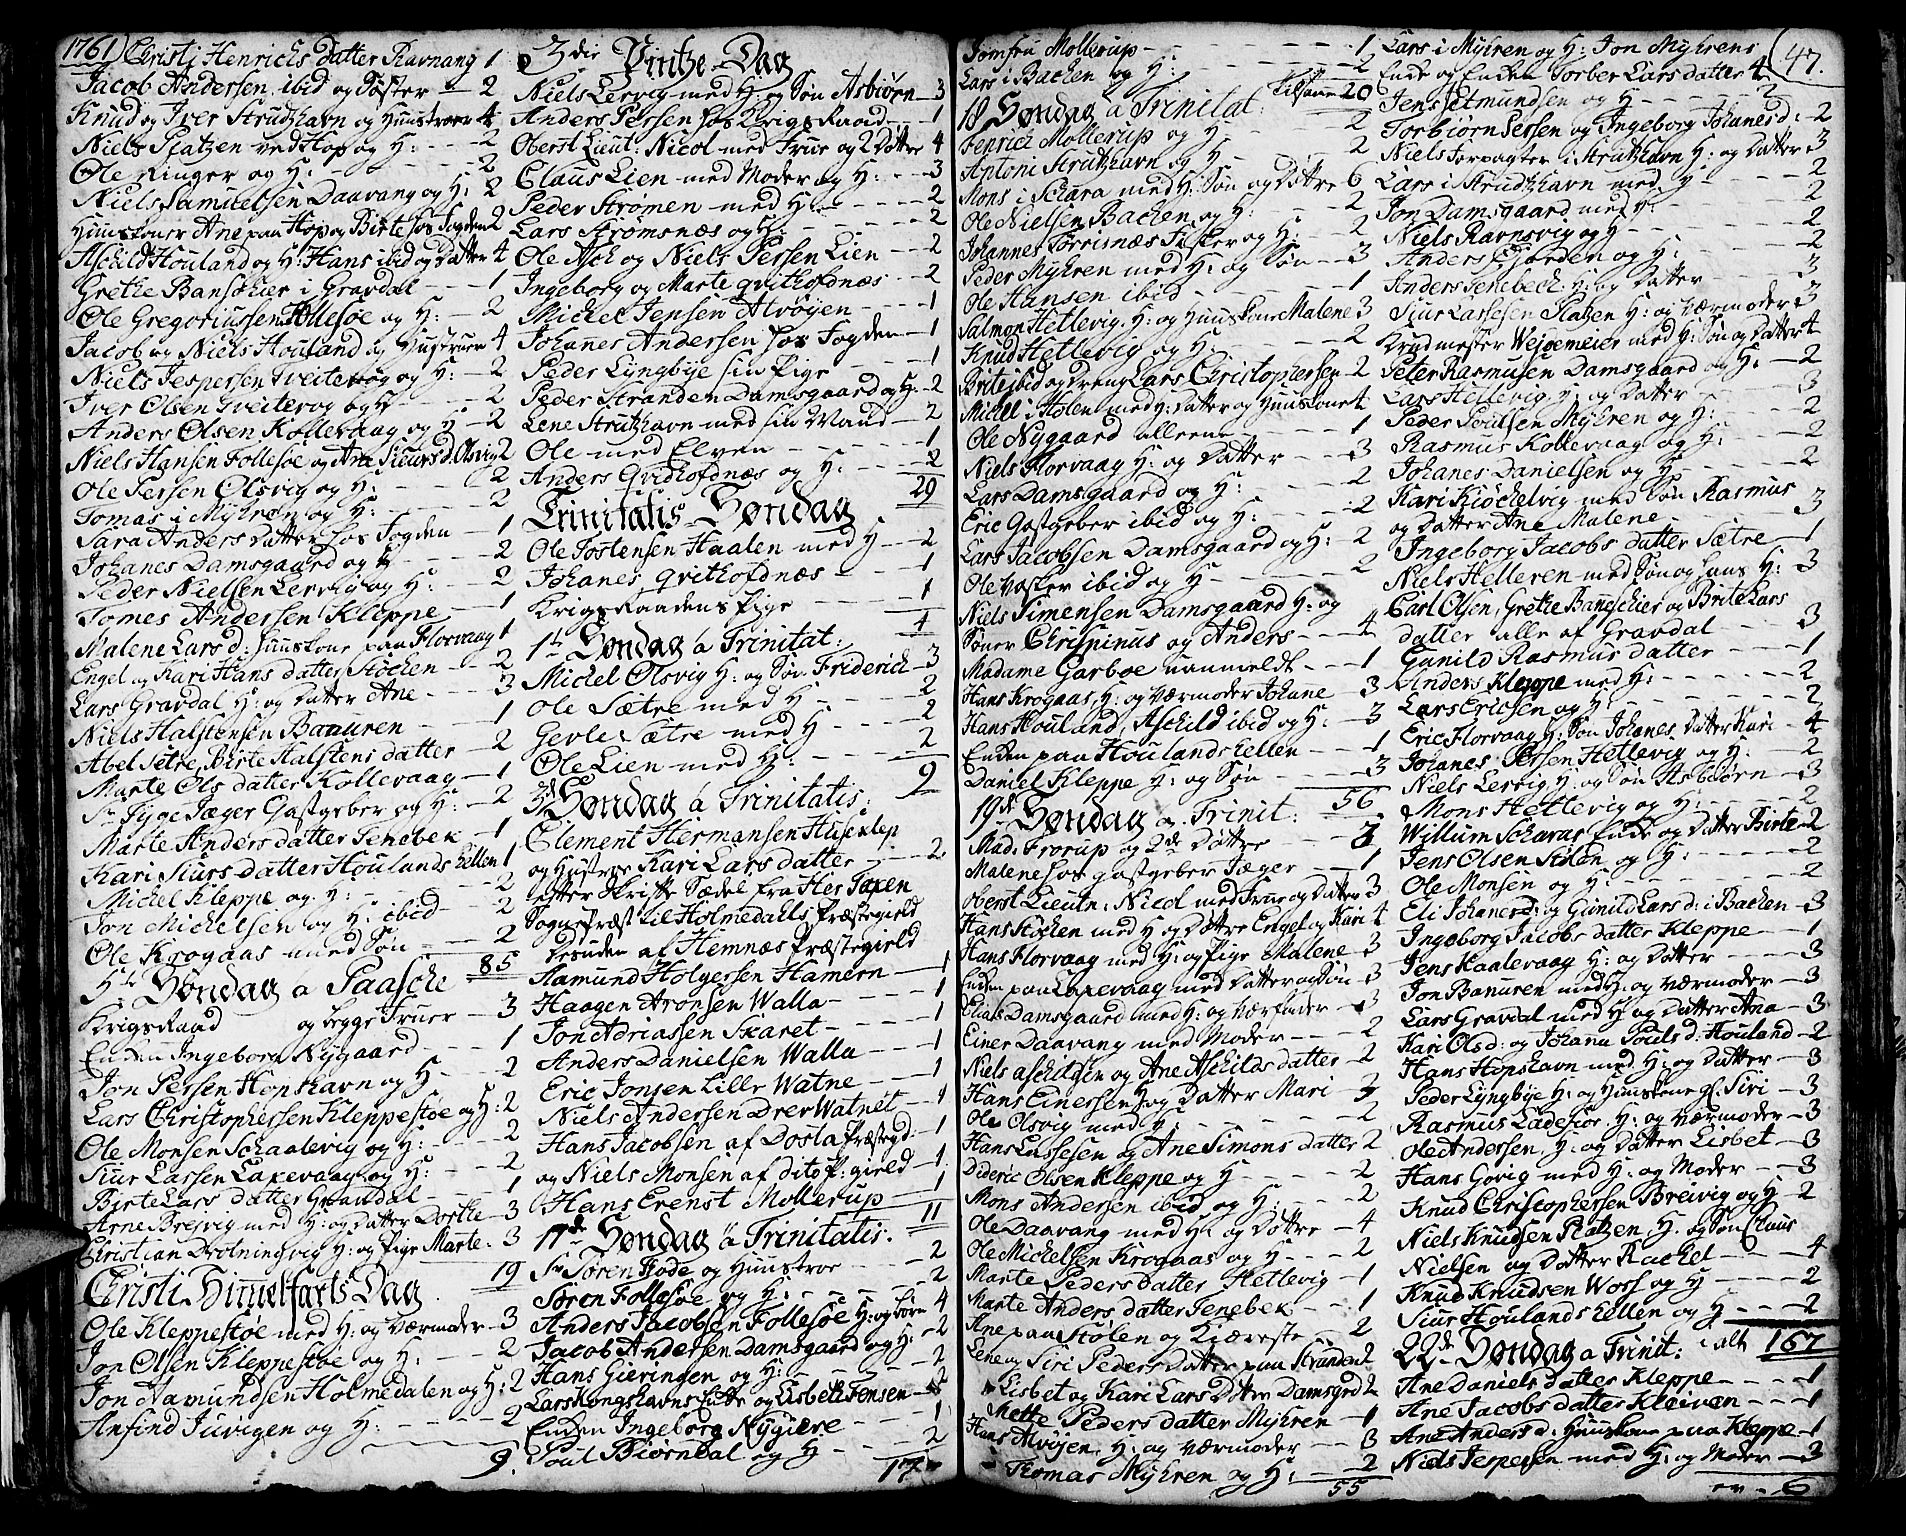 1761
Christi Henrichs datter Ravnang 1
Jacob Andersen ibid og Søster 2
Knud og Iver Strudshavn og Hustruer 4
Niels Platzen ved Hop og H: 2
Ole Ringer og H: 2
Niels Samuelsen Daavang og H: 2
Huuskoner Ane paa Hop og Birte hos Fogden 2
Aschild Houland og H: Hans ibid og datter 4
Grethe Bansøhier i Gravdal 1
Ole Gregoriussen Follesøe og H: 2
Jacob og Niels Houland og Hustruer 4
Niels Jespersen Tveiterog og H: 2
Iver Olsen Tveiterog og H 2
Anders Olsen Kollevaag og H 2
Niels Hansen Follesøe og Ane Siurs d. Olsvig 2
Ole Persen Olsvig og H: 2
Tomas i Myhren og H: 2
Sara Anders datter hos Fogden 1
Johanes Damsgaard og H 2
Peder Nielsen Lervig og H: 2
Tomes Andersen Kleppe 1
Malene Lars d: huuskone paa Florvaag 1
Engel og Kari Hans datter Støchen 2
Lars Gravdal H: og datter Ane 3
Niels Halstensen Baauren 1
Abel Sætre, Birte Halstens datter 2
Marte Ols datter Kollevaag 1
Sr Jyge Jæger Gastgeber og H: 2
Marte Anders datter Tenebek 1
Kari Siurs datter Houlands hellen 1
Michel Kleppe og H: 2
Jon Michelsen og H: ibid 2
Ole Krogaas med Søn 2
85
5te Søndag a Paasche
KrigsRaad og begge Fruer 3
Enken Ingeborg Nygaard 1
Jon Persen Hopshavn og H 2
Lars Christophersen Kleppestøe og H: 2
Ole Monsen Schaalevig og H: 2
Siur Larsen Laxevaag og H: 2
Birte Lars datter Gravdal 1
Arne Breivig med H: og datter Dorthe 3
Christian Drotningvig H: og pige Marte 3
19
Christi Himmelfarts Dag
Ole Kleppestøe med H: og Værmoder 3
Jon Olsen Kleppestøe og H: 2
Jon Aamundsen Holmedalen og H: 2
Anfind Juvigen og H: 2
9.
3die Pintze Dag
Niels Lervig med H: og Søn Asbiørn 3
Anders Persen hos Krigs Raad 1
Oberst Lieut: Nicol med Frue og 2 Døttre 4
Claus Lien med Moder og H: 3
Peder Strømen med H: 2
Lars Strømsnæs og H: 2
Ole Ash og Niels Persen Lien 2
Ingeborg og Marte qvithofdnæs 2
Michel Jensen Alvøyen 1
Johanes Andersen hos Fogden 1
Peder Lyngbye sin Pige 1
Peder Stranden Damsgaard og H: 2
Lene Strutzhavn med sin Mand 2
Ole med Elven 1
Anders Qvidhofdnæs og H: 2
29
Trinitatis Søndag
Ole Tostensen Haalen med H 2
Johanes qvithofdnæs 1
Krigs Raadens Pige 1
4
1te Søndag a Trinitat:
Michel Olsvig H: og Søn Friderich 3
Ole Sætre med H 2
Gevle Sætre med H 2
Ole Lien med H: 2
9
3de Søndag a Trinitatis:
Clement Hermansen Husklep
og Hustrue Kari Lars datter 2
efter Skriftte Sædel fra Her Taxen
Sognepræst til Holmedahls Præstegield
desuden af Hemnæs Præstegield
Aamund Holgersen Hamern 1
Haagen Aronsen Walla 1
Jon Adriassen Skaret 1
Anders Danielsen Walla 1
Eric Jonsen Lille Watne 1
Niels Andersen Drer Watnet 1
Hans Jacobsen af Dosta Præstegd: 1
og Niels Monsen af dito P: gield 1
Hans Ernst Mollerup 1
11
17de Søndag a Trinitatis:
Sr Søren Hode og Huustroe 2
Søren Follesøe og H: 2
Anders Jacobsen Follesøe H: og børn 4
Jacob Andersen Damsgaard og H: 2
Hans Gieringen og H: 2
Lars Kongshavns Enke og Lisbeth Tonsen 2
Enken Ingeborg Nygiere 1
Poul Biørndal og H 2
17
Jomfru Mollerup 1
Lars i Bachen og H: 2
tilsam̄en 20
18 Søndag a Trinitat:
Henrici Mollerup og H 2
Antoni Strutzhavn og H 2
Mons i Schara med H: Søn og Døttre 6
Ole Nielsen Bachen og H: 2
Johannes Torrisnæs Fisker og H: 2
Peder Myhren med H: og Søn 3
Ole Hansen ibid 1
Salmon Hetlevig H: og Huuskone Malene 3
Knud Hetlevig og H: 2
Brite ibid og dreng Lars Christophersen 2
Michel i Holen med H: datter og Huuskone 4
Ole Nygaard alleene 1
Niels Florvaag H: og datter 3
Lars Damsgaard og H: 2
Eric Gastgeber ibid og H: 2
Lars Jacobsen Damsgaard og H: 2
Ole Vasker ibid og H 2
Niels Simensen Damsgaard H: og
Søner Chrispinus og Anders 4
Madame Garboe uanmeldt 1
Hans Krogaas H: og Værmoder Johane 3
Hans Houland, Aschild ibid og H: 3
Enken paa Houlands hellen 1
Daniel Kleppe H: og Søn 3
56
19de Søndag a Trinit:
Mad: Frorup og 2de Døttre 3
Malene hos gastgeber Jæger 1
Oberst Lieutn: Nicol med Frue og datter 3
Hans Støchen med H og Døttre Engel og Kari 4
Hans Florvaag med H: og Pige Malene 3
Enken paa Laxevaag med datter og Søn 3
Elias Damsgaard med H: og Værfader 3
Einer Daavang med Moder 2
Niels Aschildsen og Ane Aschilds datter 2
Hans Einersen H og datter Mari 3
Ole Olsvig med H: 2
Hans Lassesen og Ane Simons datter 2
Dideric Olsen Kleppe og H 2
Mons Andersen ibid og H: 2
Ole Daavang med H: og Døttre 4
Ole Michelsen Krogaas og H 2
Marte Peders datter Hetlevig 1
Marte Anders datter Tenebek 1
Ane paa Stølen og Kiæreste 2
Lene og Siri Peders datter paa Stranden 2
Lisbet og Kari Lars Døtter Damsgrd 2
Mette Peders datter Myhren 1
Hans Alvøjen H: og Værmoder 3
Thomas Myhren og H: 2
55
47.
Lars i Myhren og H: Jon Myhrens
Enke og Enken Torber Lars datter 4
Jens Setmundsen og H 2
Torbiørn Persen og Ingeborg Johanes d: 2
Niels Forpagter i Strutzhavn H: og datter 3
Lars i Strudtzhavn med H 2
Jon Damsgaard med H: 2
Niels Ravnsvig og H 2
Anders Fjorden og H: 2
Anders Tenebech H: og datter 3
Siur Larssen Platzen H: og Værmoder 3
Krudmester Weidemeier med H: Søn og datter 4
Peter Rasmusen Damsgaard og H: 2
Lars Hetlevig H: og datter 3
Peder Poulsen Myhren og H: 2
Rasmus Kollevaag og H: 2
Johanes Danielsen og H: 2
Kari Kiøchelvig med Søn Rasmus
og datter Ane Malene 3
Ingeborg Jacobs datter Sætre 1
Niels Helleren med Søn og hans H: 3
Carl Olsen, Grethe Bansøhier og Brite Lars
datter alle af Gravdal 3
Gunild Rasmus datter 1
Anders Kleppe med H: 2
Lars Ericsen og H: 2
Eric Florvaag H: Søn Johanes, datter Kari 4
Johanes Persen Hetlevig og H: 2
Niels Lervig H: og Søn Asbiørn 3
Mons Hetlevig og H: 2
Willum Scharas Enke og datter Birte 2
Jens Olsen Stølen og H: 2
Ole Monsen og H: 2
Eli Johanes d: og Gunild Lars d: i Bachen 3
Ingeborg Jacobs datter Kleppe 1
Jens Haalevaag H: og datter 3
Jon Banuren med H: og Værmoder 3
Lars Gravdal med H og datter Ana 3
Kari Ols d: og Johana Pouls d: Houland 2
Hans Hopshavn med H: og datter 3
Peder Lyngbye H: og Huuskone gl. Siri 3
Rasmus Ladefior H: og Værmoder 3
Ole Andersen H: og datter Lisbet 3
Hans Govig med H: og Moder 3
Knud Christophersen Breivig og H 2
Niels Knudsen Platzen H: og Søn Claus
Nielsen og datter Rachel 4
Knud Knudsen Worf og H 2
Siur Houlands hellen og H 2
i alt 167
22de Søndag a Trinit:
Ane Daniels datter Kleppe 1
Ane Jacobs datter Kleiven 1
Ane Anders d: Huuskone paa Kleppe 1
Niels Jespersen med H: og Moder 3
6